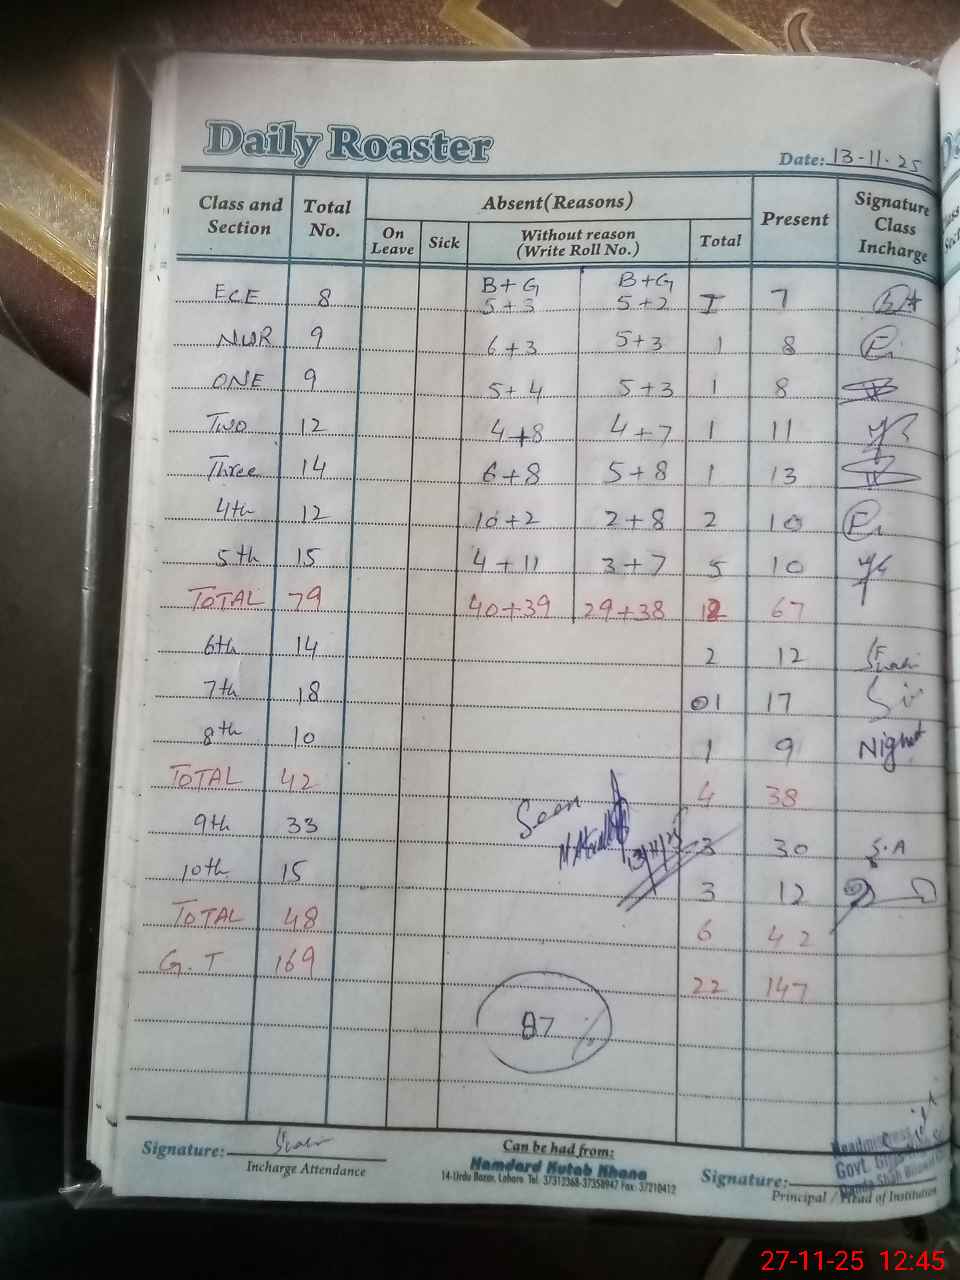 Daily Roaster
Date: 13-11-25
Class and Section Total No. Absent(Reasons) Present Signature Class Incharge
On Leave Sick Without reason (Write Roll No.) Total
B+G B+G
ECE 8 5+3 5+2 I 7
NUR 9 6+3 5+3 1 8
ONE 9 5+4 5+3 1 8
Two 12 4+8 4+7 1 11
Three 14 6+8 5+8 1 13
4th 12 10+2 2+8 2 10
5th 15 4+11 3+7 5 10
TOTAL 79 40+39 29+38 12 67
6th 14 2 12
7th 18 01 17
8th 10 1 9 Nighat
TOTAL 42 4 38
Seen
13/11/25
9th 33 3 30 S.A
10th 15 3 12
TOTAL 48 6 42
G.T 169 22 147
87 %
Signature:
Incharge Attendance
Can be had from:
Hamdard Kutab Khana
14-Urdu Bazar, Lahore Tel. 37312368-37358947 Fax: 37210412
Signature:
Principal / Head of Institution
Headmistress
Govt. Girls
27-11-25 12:45